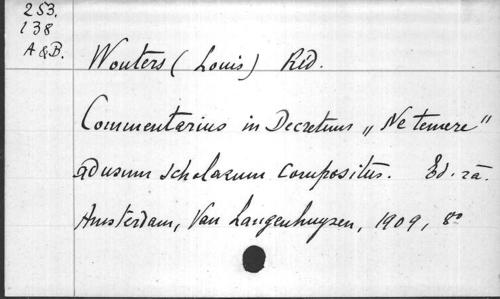 253.
138
A & B.
Wouters (Louis) Réd.
Commentarius in Decretum „Ne temere"
ad usum scholarum compositus. Ed. 2a.
Amsterdam, Van Langenhuysen, 1909, 8º